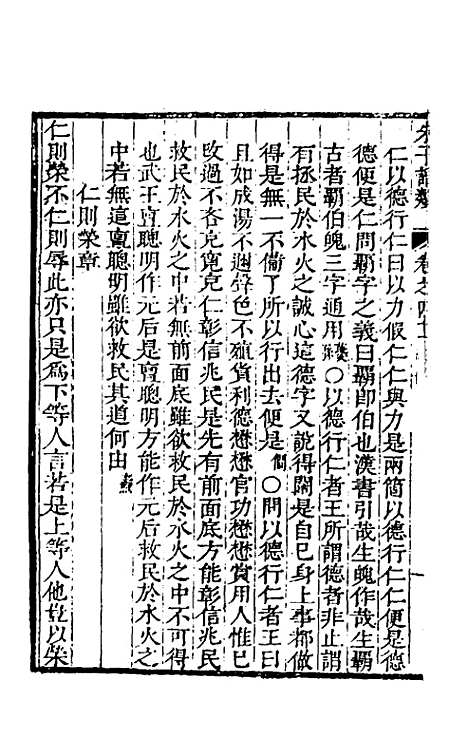 仁以德行仁曰以力假仁仁與力是兩箇以德行仁仁便是德
德便是仁問霸字之義曰霸卽伯也漢書引哉生魄作哉生霸
古者霸伯魄三字通用 ○以德行仁者王所謂德者非止謂
有拯民於水火之誠心這德字又說得闊是自己身上事都做
得是無一不備了所以行出去便是仁 僩 ○問以德行仁者王曰
且如成湯不邇聲色不殖貨利德懋懋官功懋懋賞用人惟已
改過不吝克寬克仁彰信兆民是先有前面底方能彰信兆民
救民於水火之中若無前面底雖欲救民於水火之中不可得
也武王亶聰明作元后是亶聰明方能作元后救民於水火之
中若無這亶聰明雖欲救民其道何由 燾
仁則榮章
仁則榮不仁則辱此亦只是爲下等人言若是上等人他豈以榮